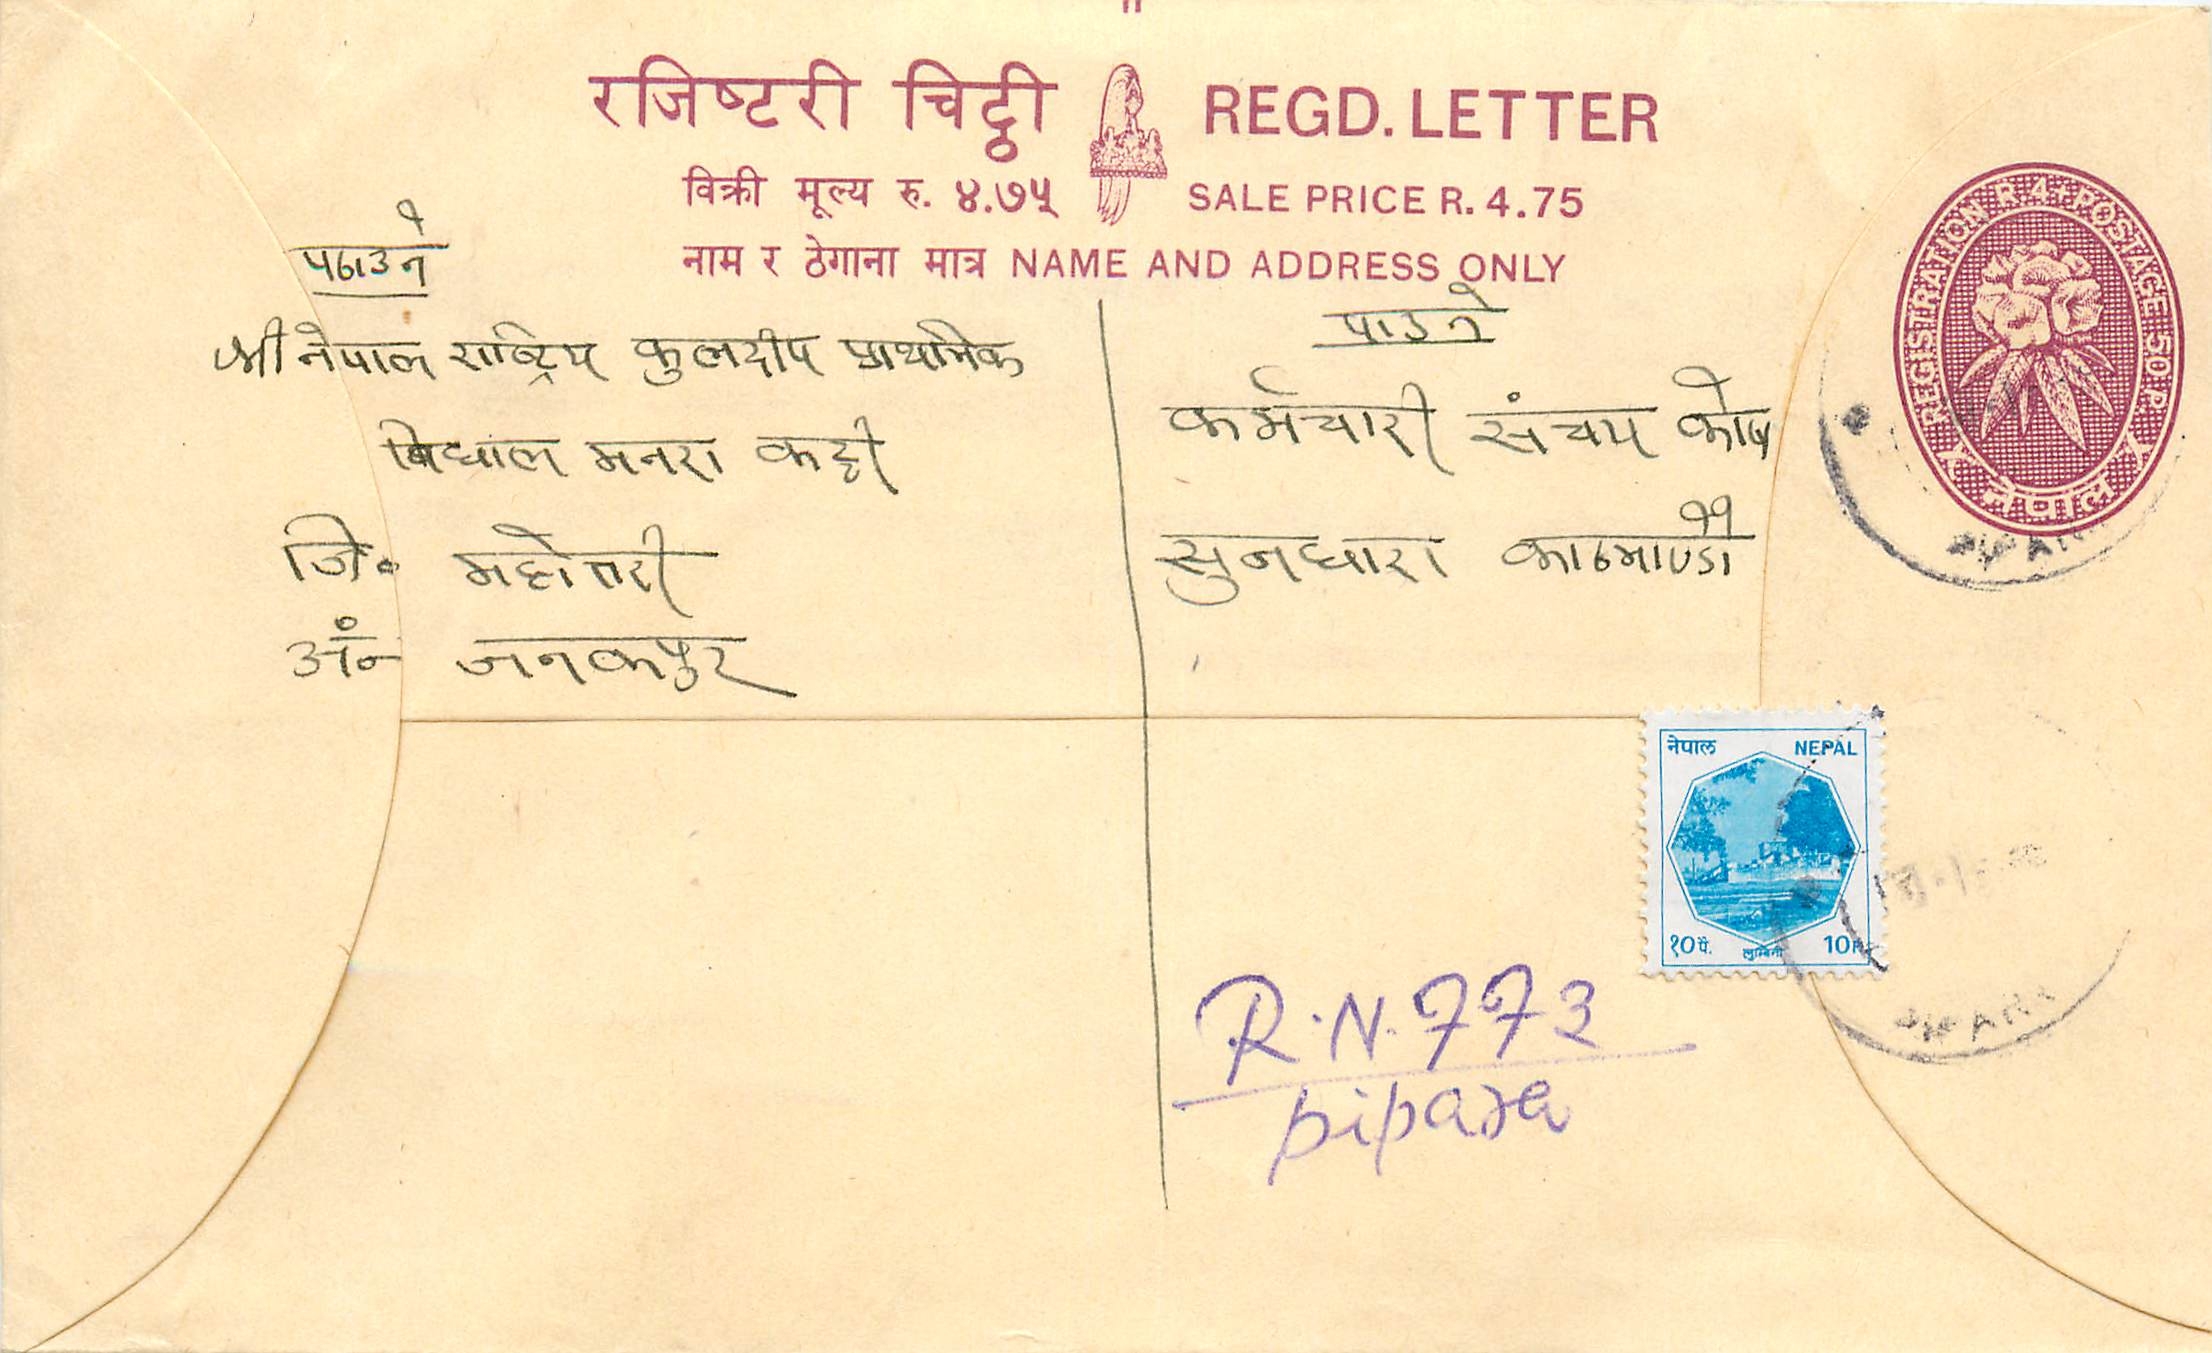 रजिष्टरी चिट्ठी REGD. LETTER
विक्री मूल्य रु. ४.७५ SALE PRICE R. 4.75
नाम र ठेगाना मात्र NAME AND ADDRESS ONLY
REGISTRATION R. 4 + POSTAGE 50 P.
नेपाल
पठाउने
श्री नेपाल राष्ट्रिय कुलदीप प्राथमिक
मनरा कट्टी
जि॰ महोत्तरी
अं॰ जनकपुर
पाउने
कर्मचारी संचय कोष
सुनधारा काठमाण्डौ
नेपाल NEPAL
१० पै. लुम्बिनी 10 P.
R.N. 773
pipara